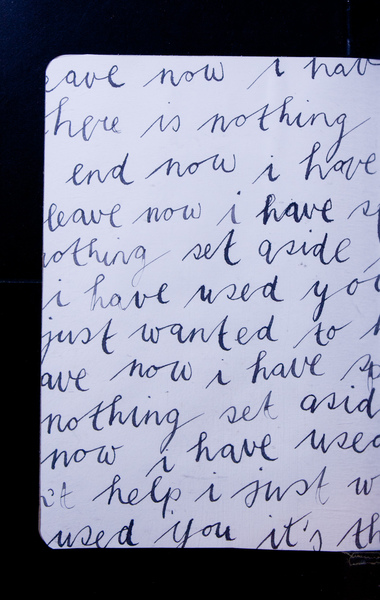 eave now i hav
here is nothing
end now i have
leave now i have s
nothing set aside
i have used yo
just wanted to h
ave now i have sp
nothing set asid
now i have used
n't help i just w
used you it's th